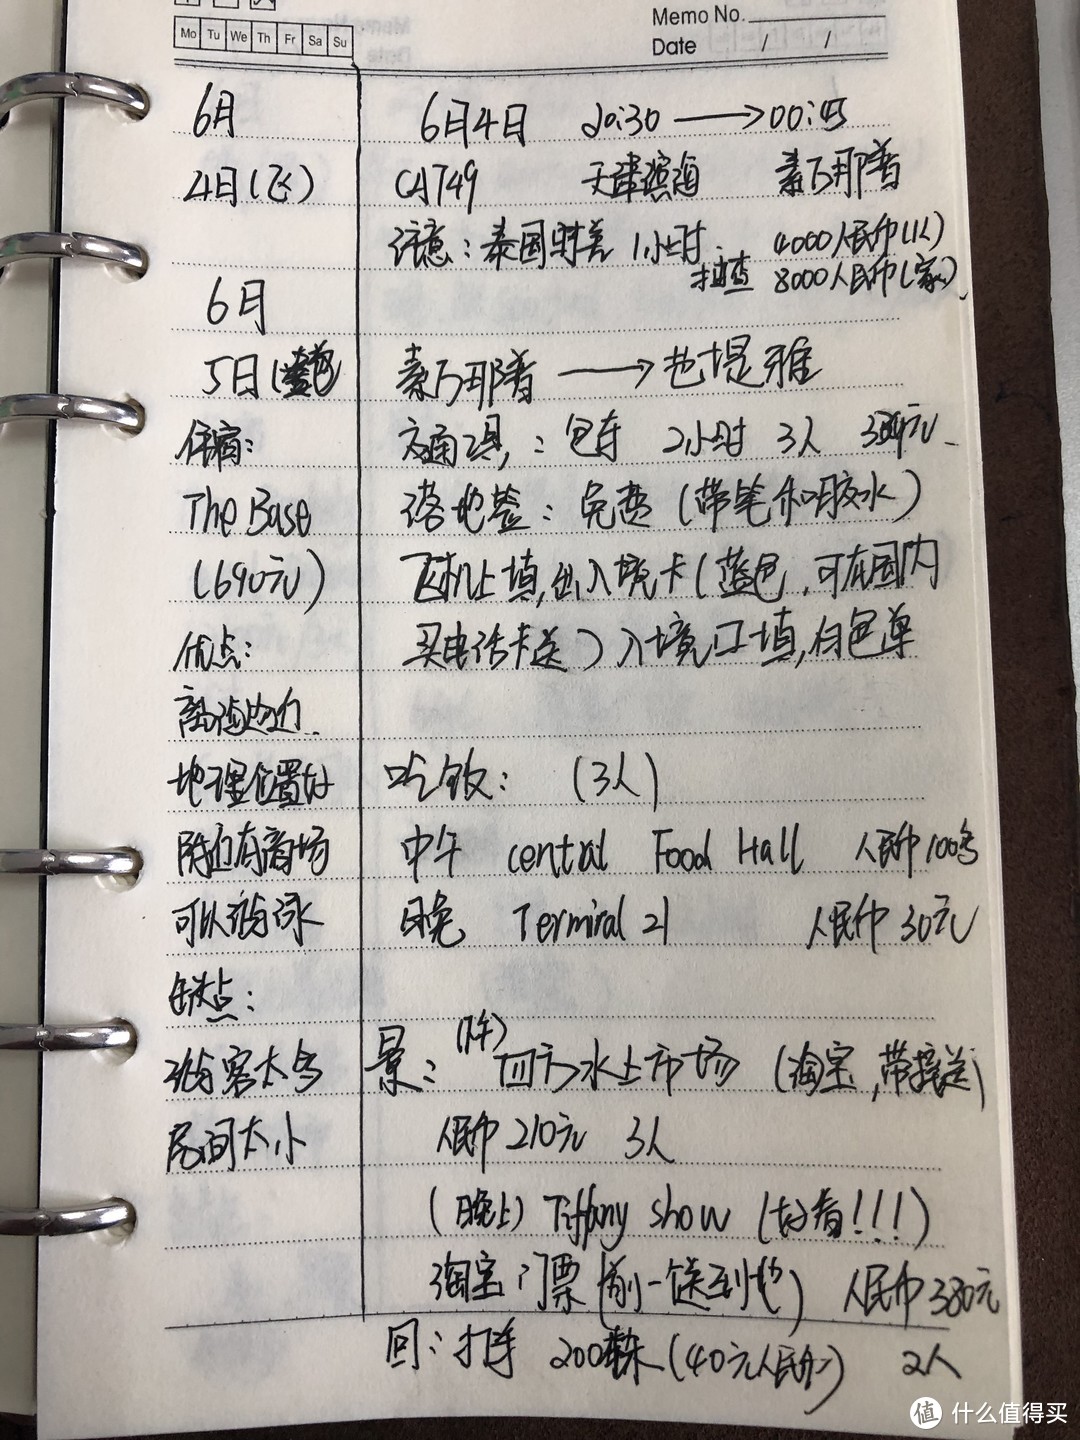 Memo No.
Mo Tu We Th Fr Sa Su
Date / /
6月 6月4日 20:30 → 00:45
4日(飞) CA749 天津滨海 素万那普
注意：泰国时差 1小时. 4000人民币(1人)
抽查 8000人民币(家)
6月
5日 素万那普 → 芭堤雅
住宿： 交通工具：包车 2小时 3人
The Base 落地签：免费(带笔和胶水)
(690元) 飞机上填,出入境卡(蓝色,可在国内
优点： 买电话卡送)入境口填,白色单
离海边近
地理位置好 吃饭： (3人)
附近有商场 中午 central Food Hall 人民币100多
可以游泳 晚 Terminal 21 人民币30元
缺点：
游客太多 景：(下午)四方水上市场 (淘宝,带接送)
房间太小 人民币210元 3人
(晚上) Tiffany show (好看!!!)
淘宝门票 人民币380元
回：打车 200泰铢(40元人民币) 2人
值 什么值得买